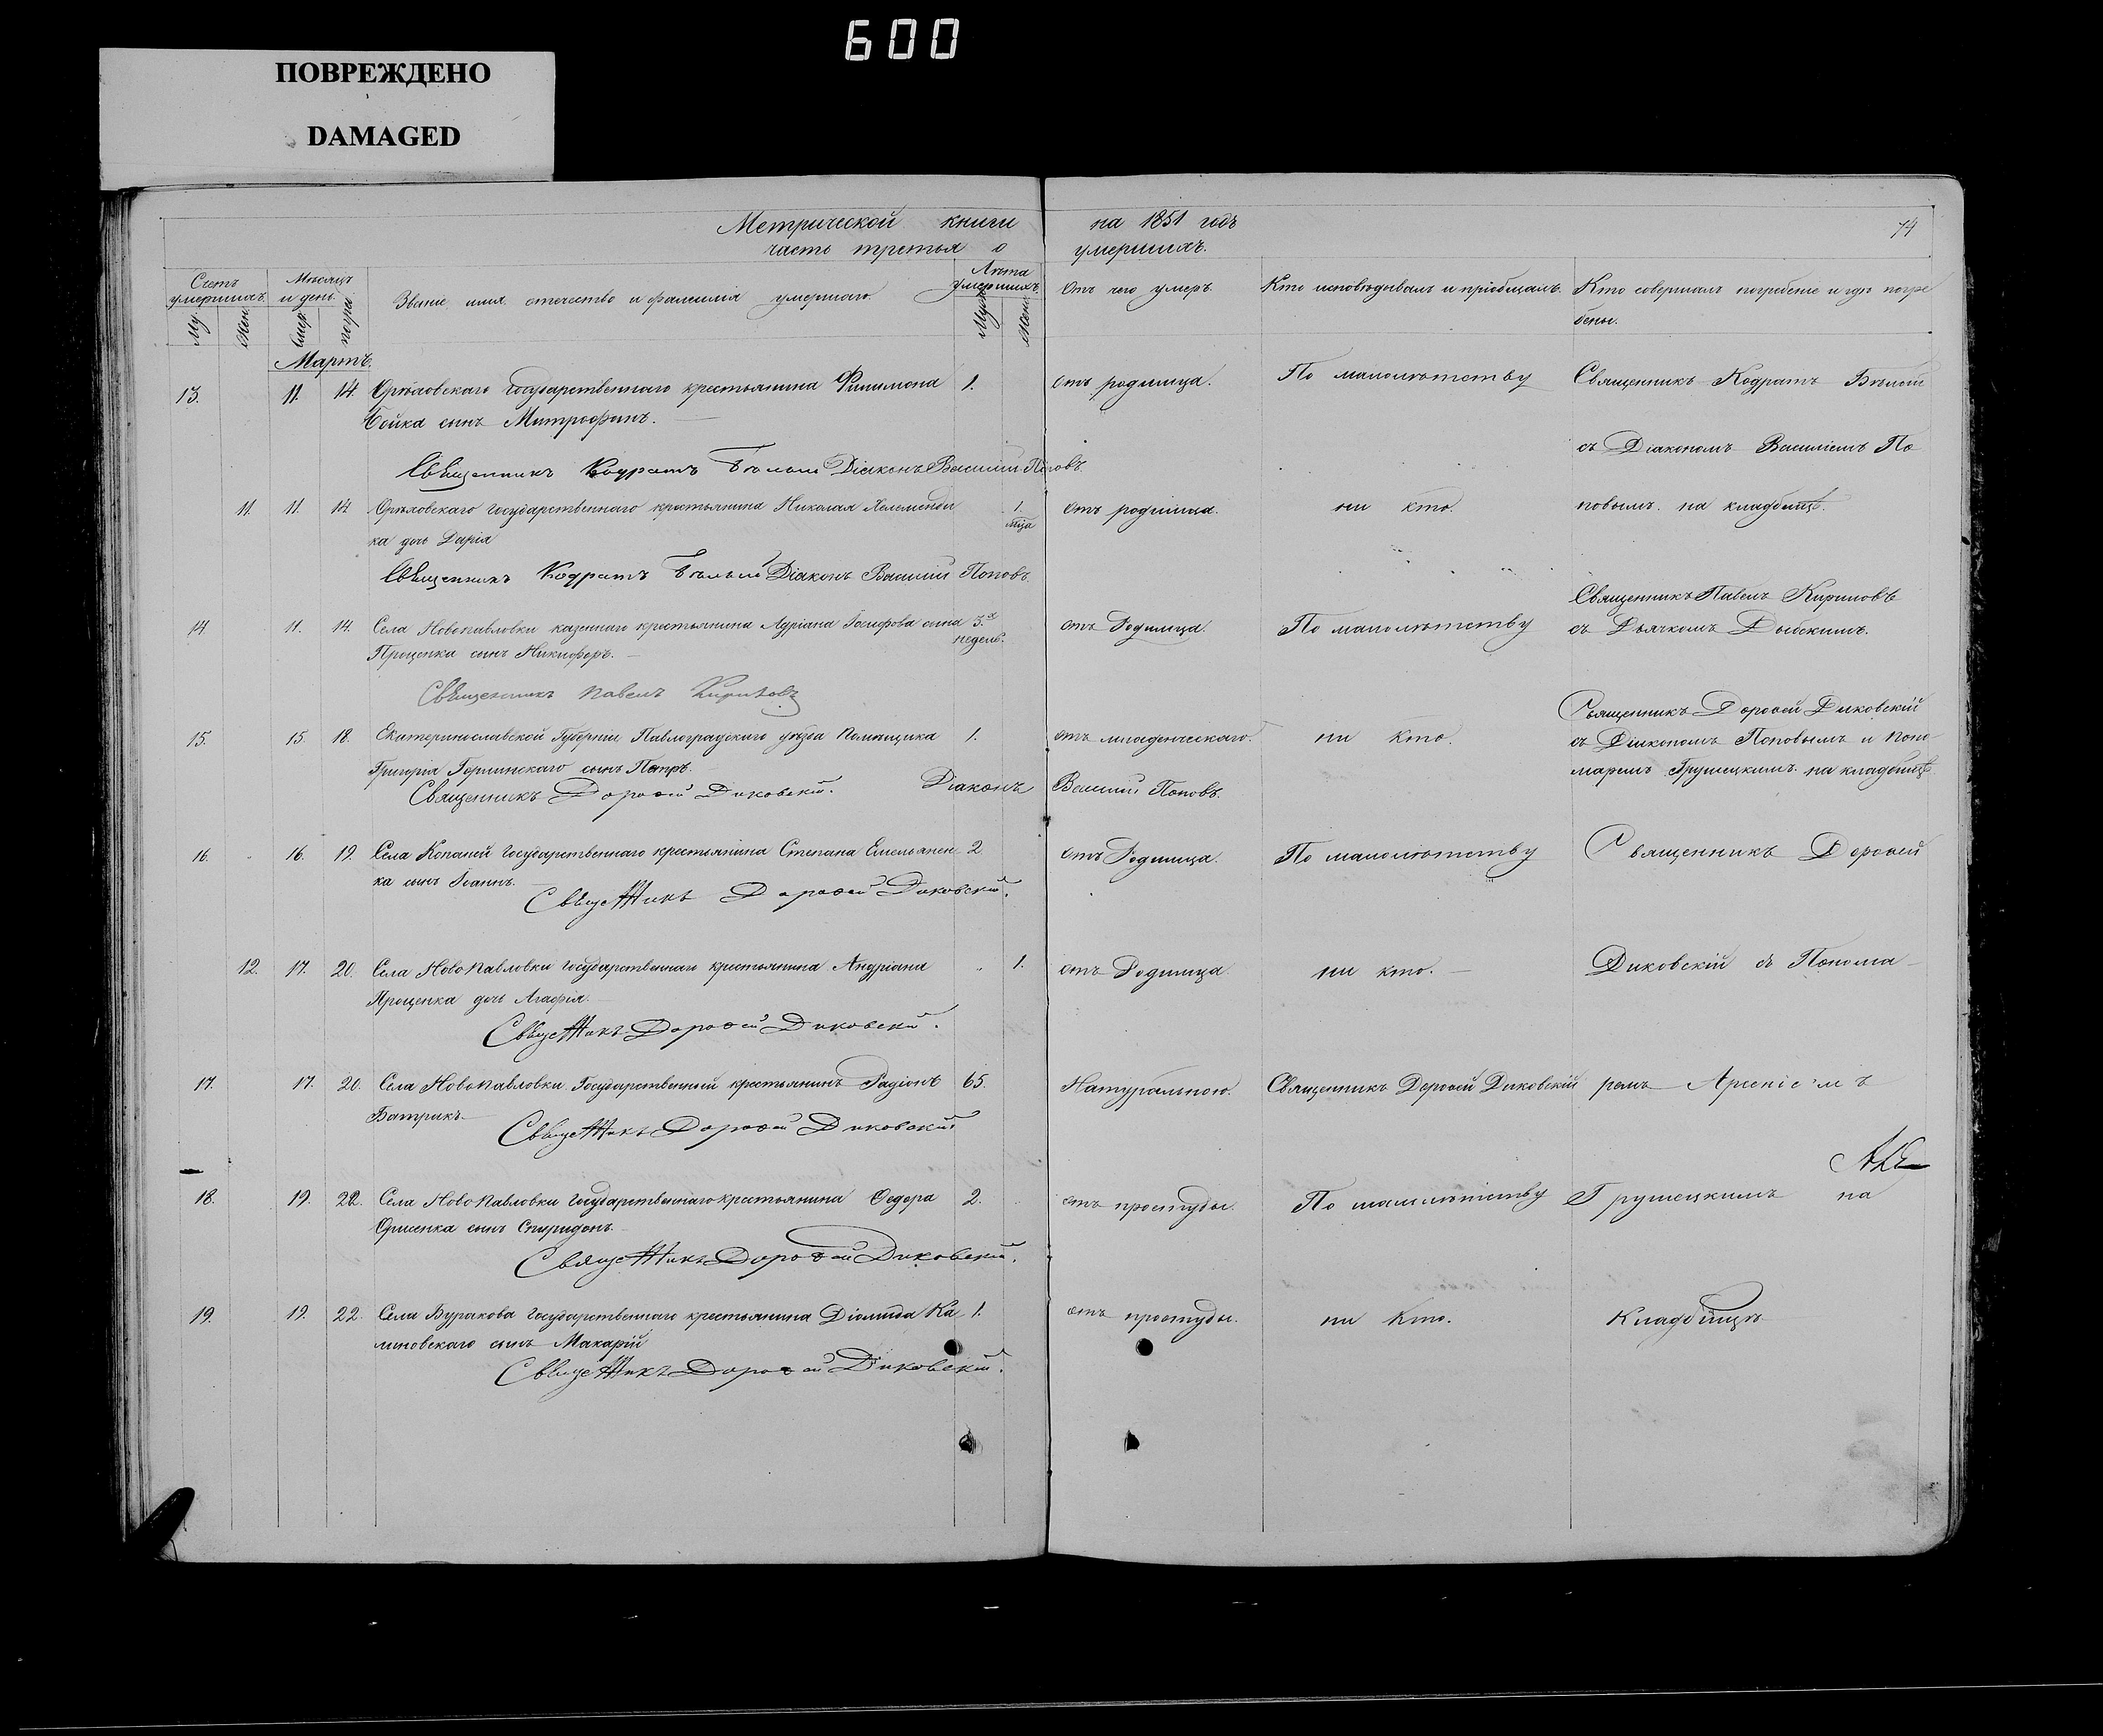 600
ПОВРЕЖДЕНО
DAMAGED
Метрической книги на 1851 годъ
часть третья о умершихъ.
74
Счетъ умершихъ.
Му.
Жен.
Мѣсяцъ и день.
Смер.
погре
Званіе имя отечество и фамилія умершаго.
Лѣта умершихъ.
Муж
Жен.
Отъ чего умеръ.
Кто исповѣдывалъ и пріобщалъ.
Кто совершалъ погребеніе и гдѣ погре
бены.
Мартъ.
13. 11. 14. Орѣховскаго государственнаго крестьянина Филимона 1. отъ родимца. По малолѣтству Священникъ Кодратъ Бѣлый
Бойка сынъ Митрофанъ.
съ Діакономъ Василіемъ По
Священникъ Кодратъ Бѣлый Діаконъ Василій Поповъ.
11. 11. 14 Орѣховскаго государственнаго крестьянина Николая 1. мѣца отъ родимца. ни кто. повымъ. на кладбищѣ.
ка дочь Дарія
Священникъ Кодратъ Бѣлый Діаконъ Василій Поповъ.
Священникъ Павелъ Кириловъ
14 11. 14. Села Новопавловки казеннаго крестьянина Адріана Іосифова сына 3.х недель. отъ Родимца. По малолѣтству съ Дьячкомъ
Проценка сынъ Никифоръ.
Священникъ Павелъ Кириловъ
Священникъ Дороѳей Диковскій
15. 15 18. Екатеринославской Губерніи Павлоградскаго уѣзда Помѣщика 1. отъ младенческаго. ни кто. съ Діакономъ Поповымъ и поно-
Григорія сынъ Петръ.
маремъ Грушецкимъ на кладбищѣ
Священникъ Дороѳей Диковскій. Діаконъ Василій Поповъ.
16. 16. 19. Села Копаней государственнаго крестьянина Степана Емельянен 2 отъ Родимца. По малолѣтству Священникъ Дороѳей
ка сынъ Іоаннъ.
Священникъ Дороѳей Диковскій.
12. 17. 20. Села Новопавловки государственнаго крестьянина Андріана 1. отъ Родимца ни кто. Диковскій съ Понома
Проценка дочь Агафія.
Священникъ Дороѳей Диковскій.
17. 17. 20. Села Новопавловки Государственный крестьянинъ Радіонъ 65. Натуральною. Священникъ Дороѳей Диковскій ремъ Арсеніемъ
Батракъ.
Священникъ Дороѳей Диковскій
18. 19. 22. Села Новопавловки государственнаго крестьянина Ѳедора 2. отъ простуды. По малолѣтству Грушецкимъ на
сынъ Спиридонъ.
Священникъ Дороѳей Диковскій.
19. 19. 22. Села Буракова государственнаго крестьянина Діомида Ка 1. отъ простуды. ни кто. Кладбищѣ
линовскаго сынъ Макарій
Священникъ Дороѳей Диковскій.